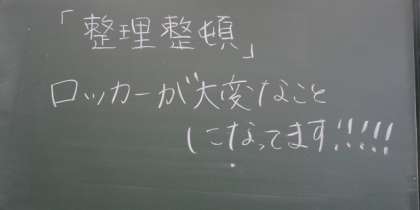 「整理整頓」
ロッカーが大変なこと
になってます!!!!!